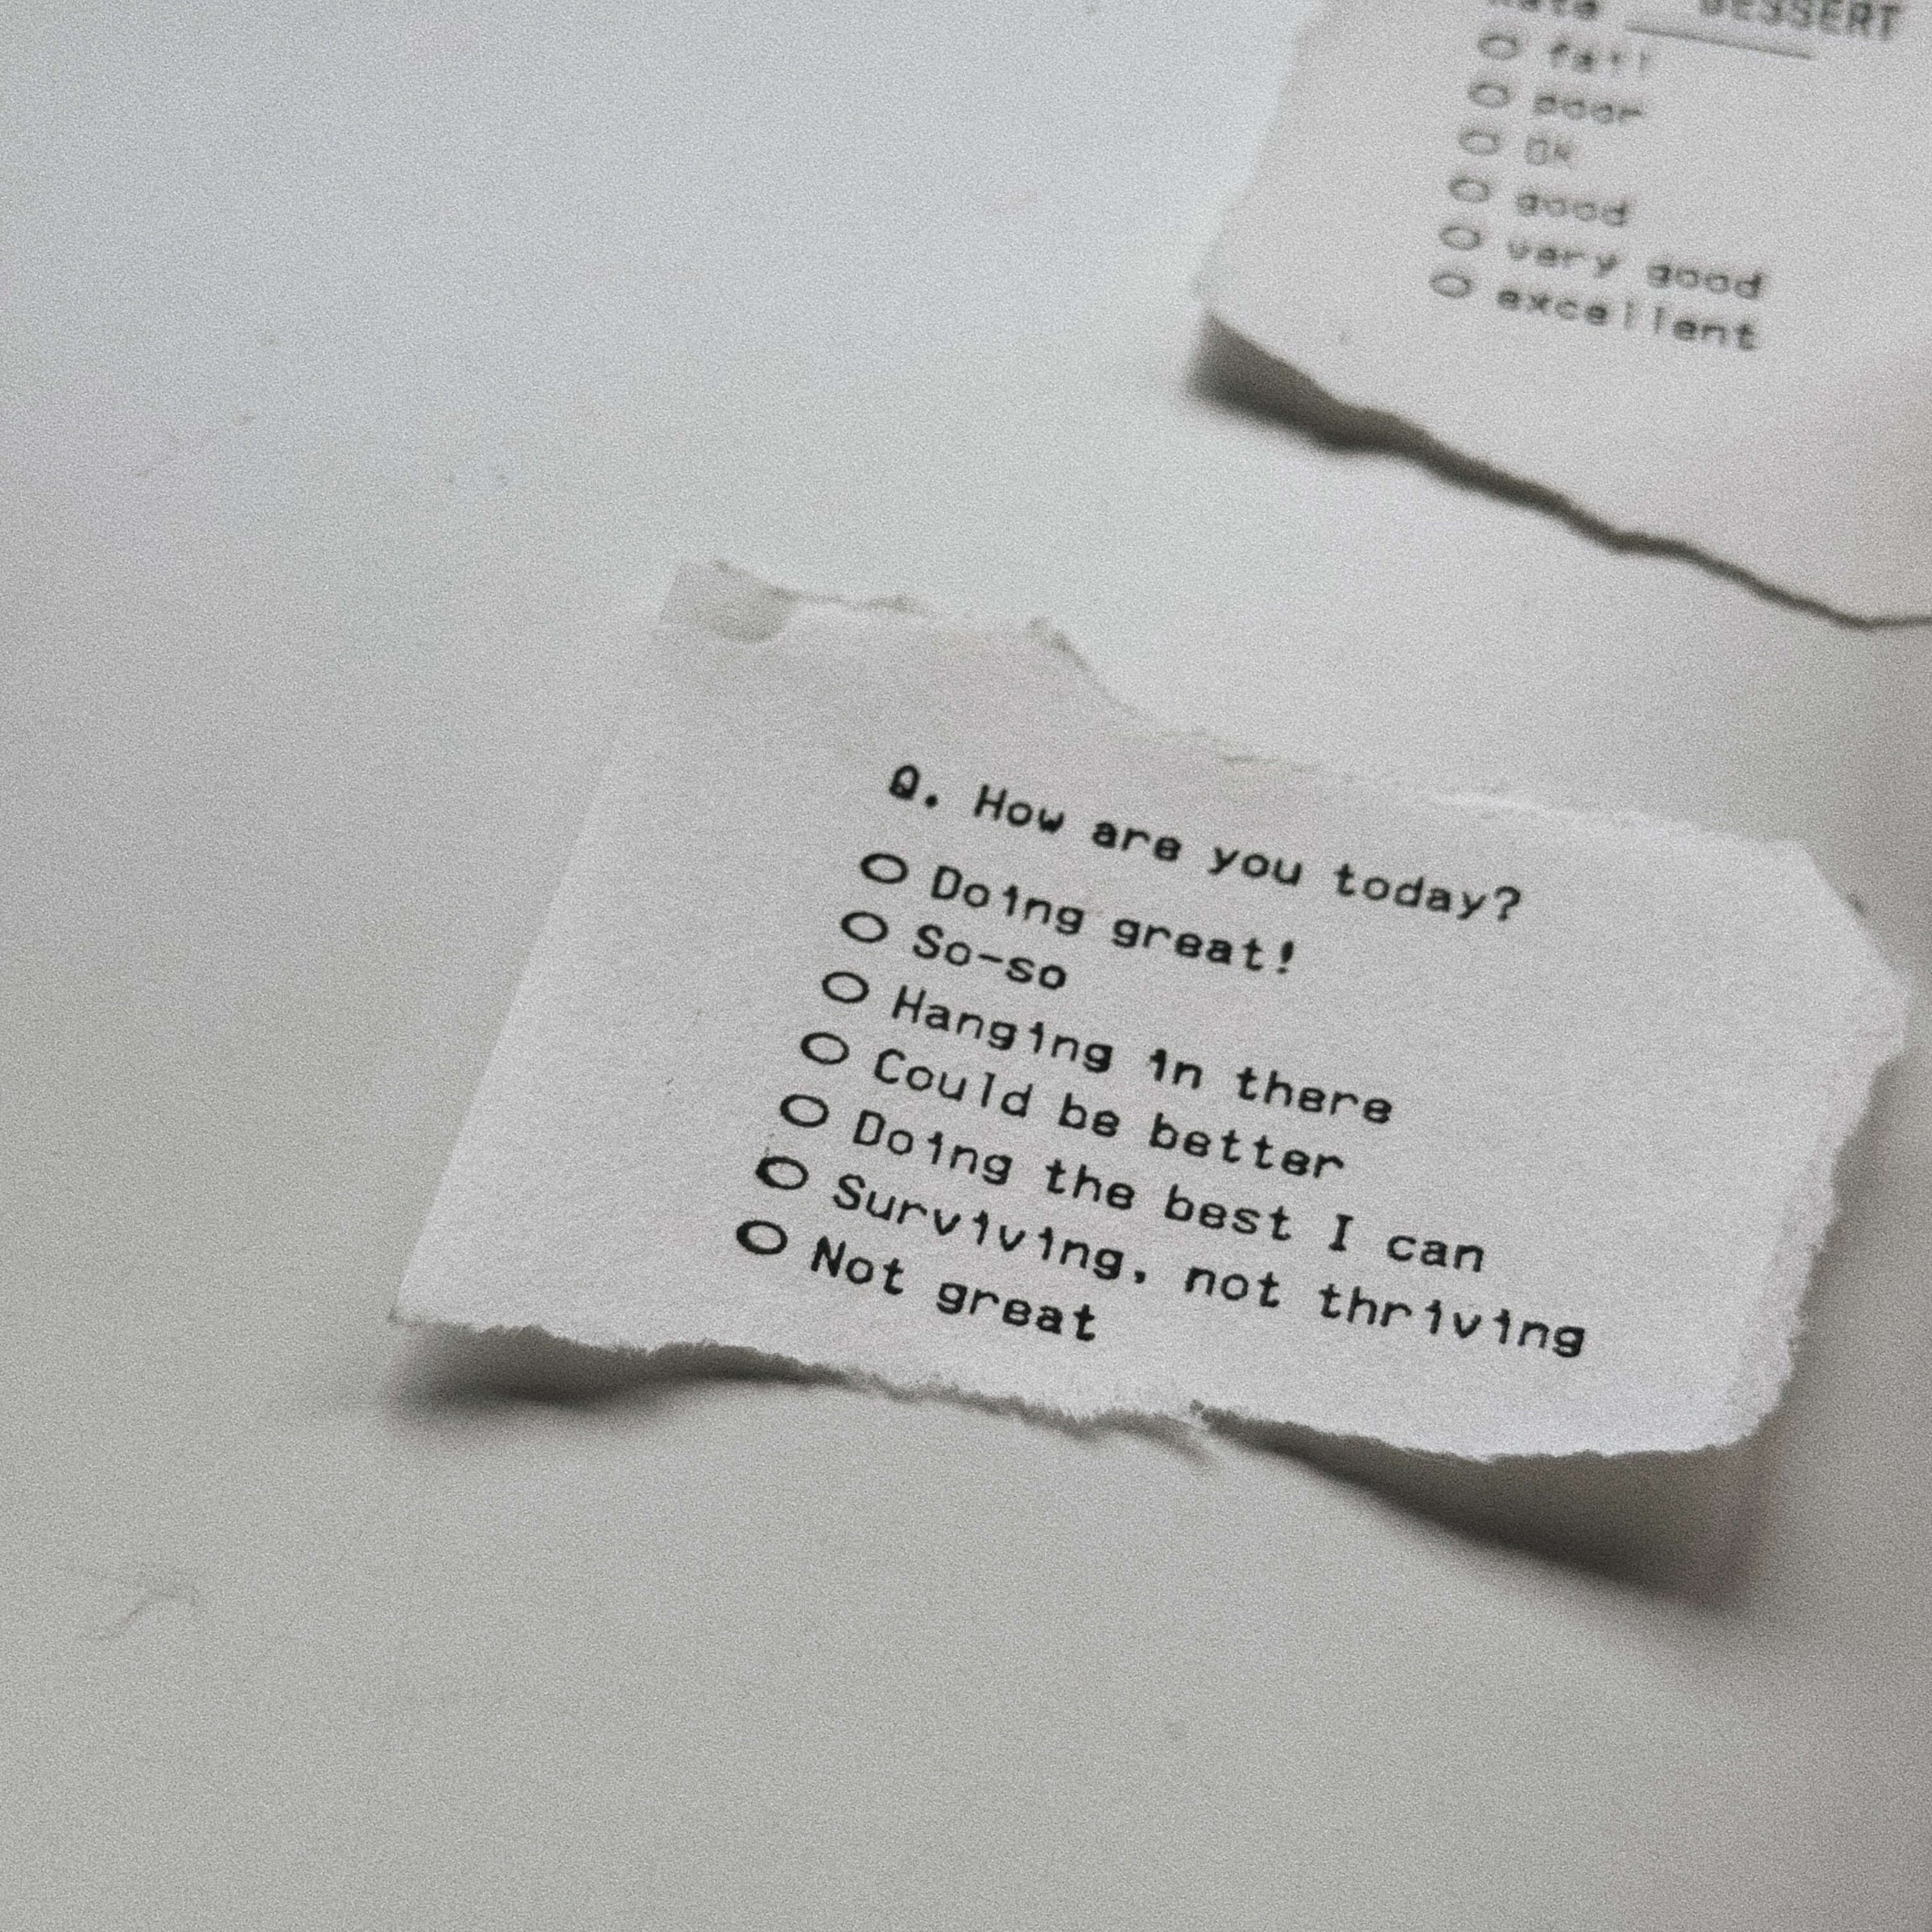 DESSERT
fail
poor
OK
good
very good
excellent
Q. How are you today?
Doing great!
So-so
Hanging in there
Could be better
Doing the best I can
Surviving, not thriving
Not great